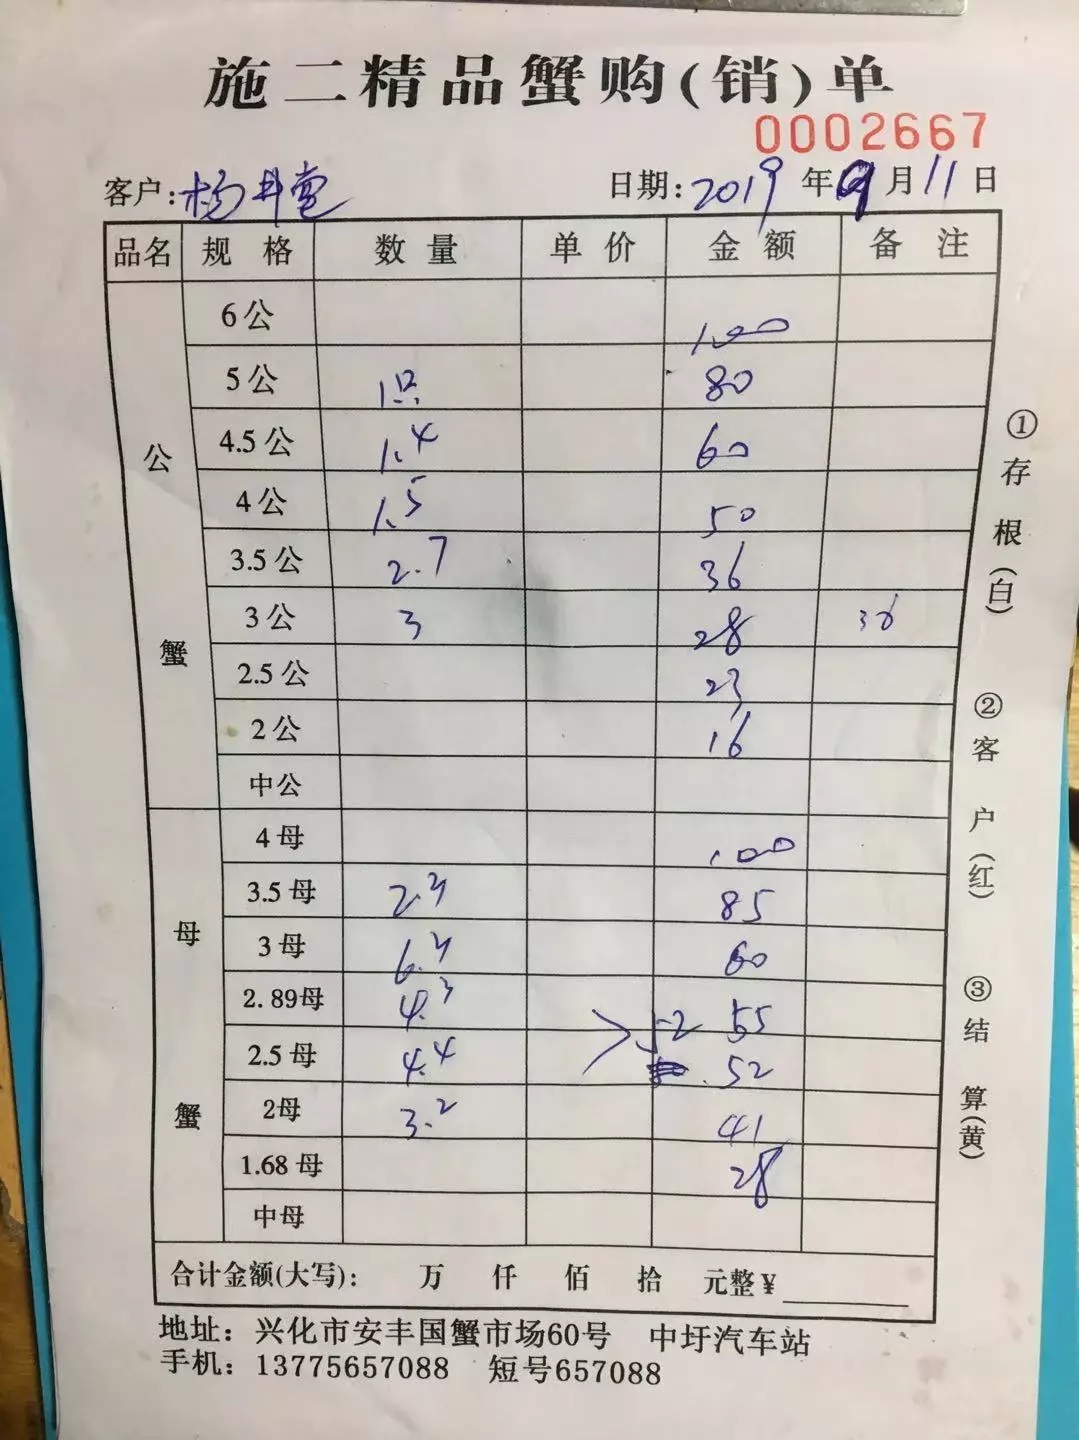 施二精品蟹购(销)单
0002667
客户:杨井宽 日期:2019年9月11日
品名 规格 数量 单价 金额 备注
公蟹
6公 100
5公 1只 80
4.5公 1.4 60
4公 1.5 50
3.5公 2.7 36
3公 3 28 36
2.5公 23
2公 16
中公
母蟹
4母 100
3.5母 2.4 85
3母 6.4 60
2.89母 4.3 52 55
2.5母 4.4 52
2母 3.2 41
1.68母 28
中母
合计金额(大写): 万 仟 佰 拾 元整¥
地址：兴化市安丰国蟹市场60号 中圩汽车站
手机：13775657088 短号657088
①存根(白)
②客户(红)
③结算(黄)